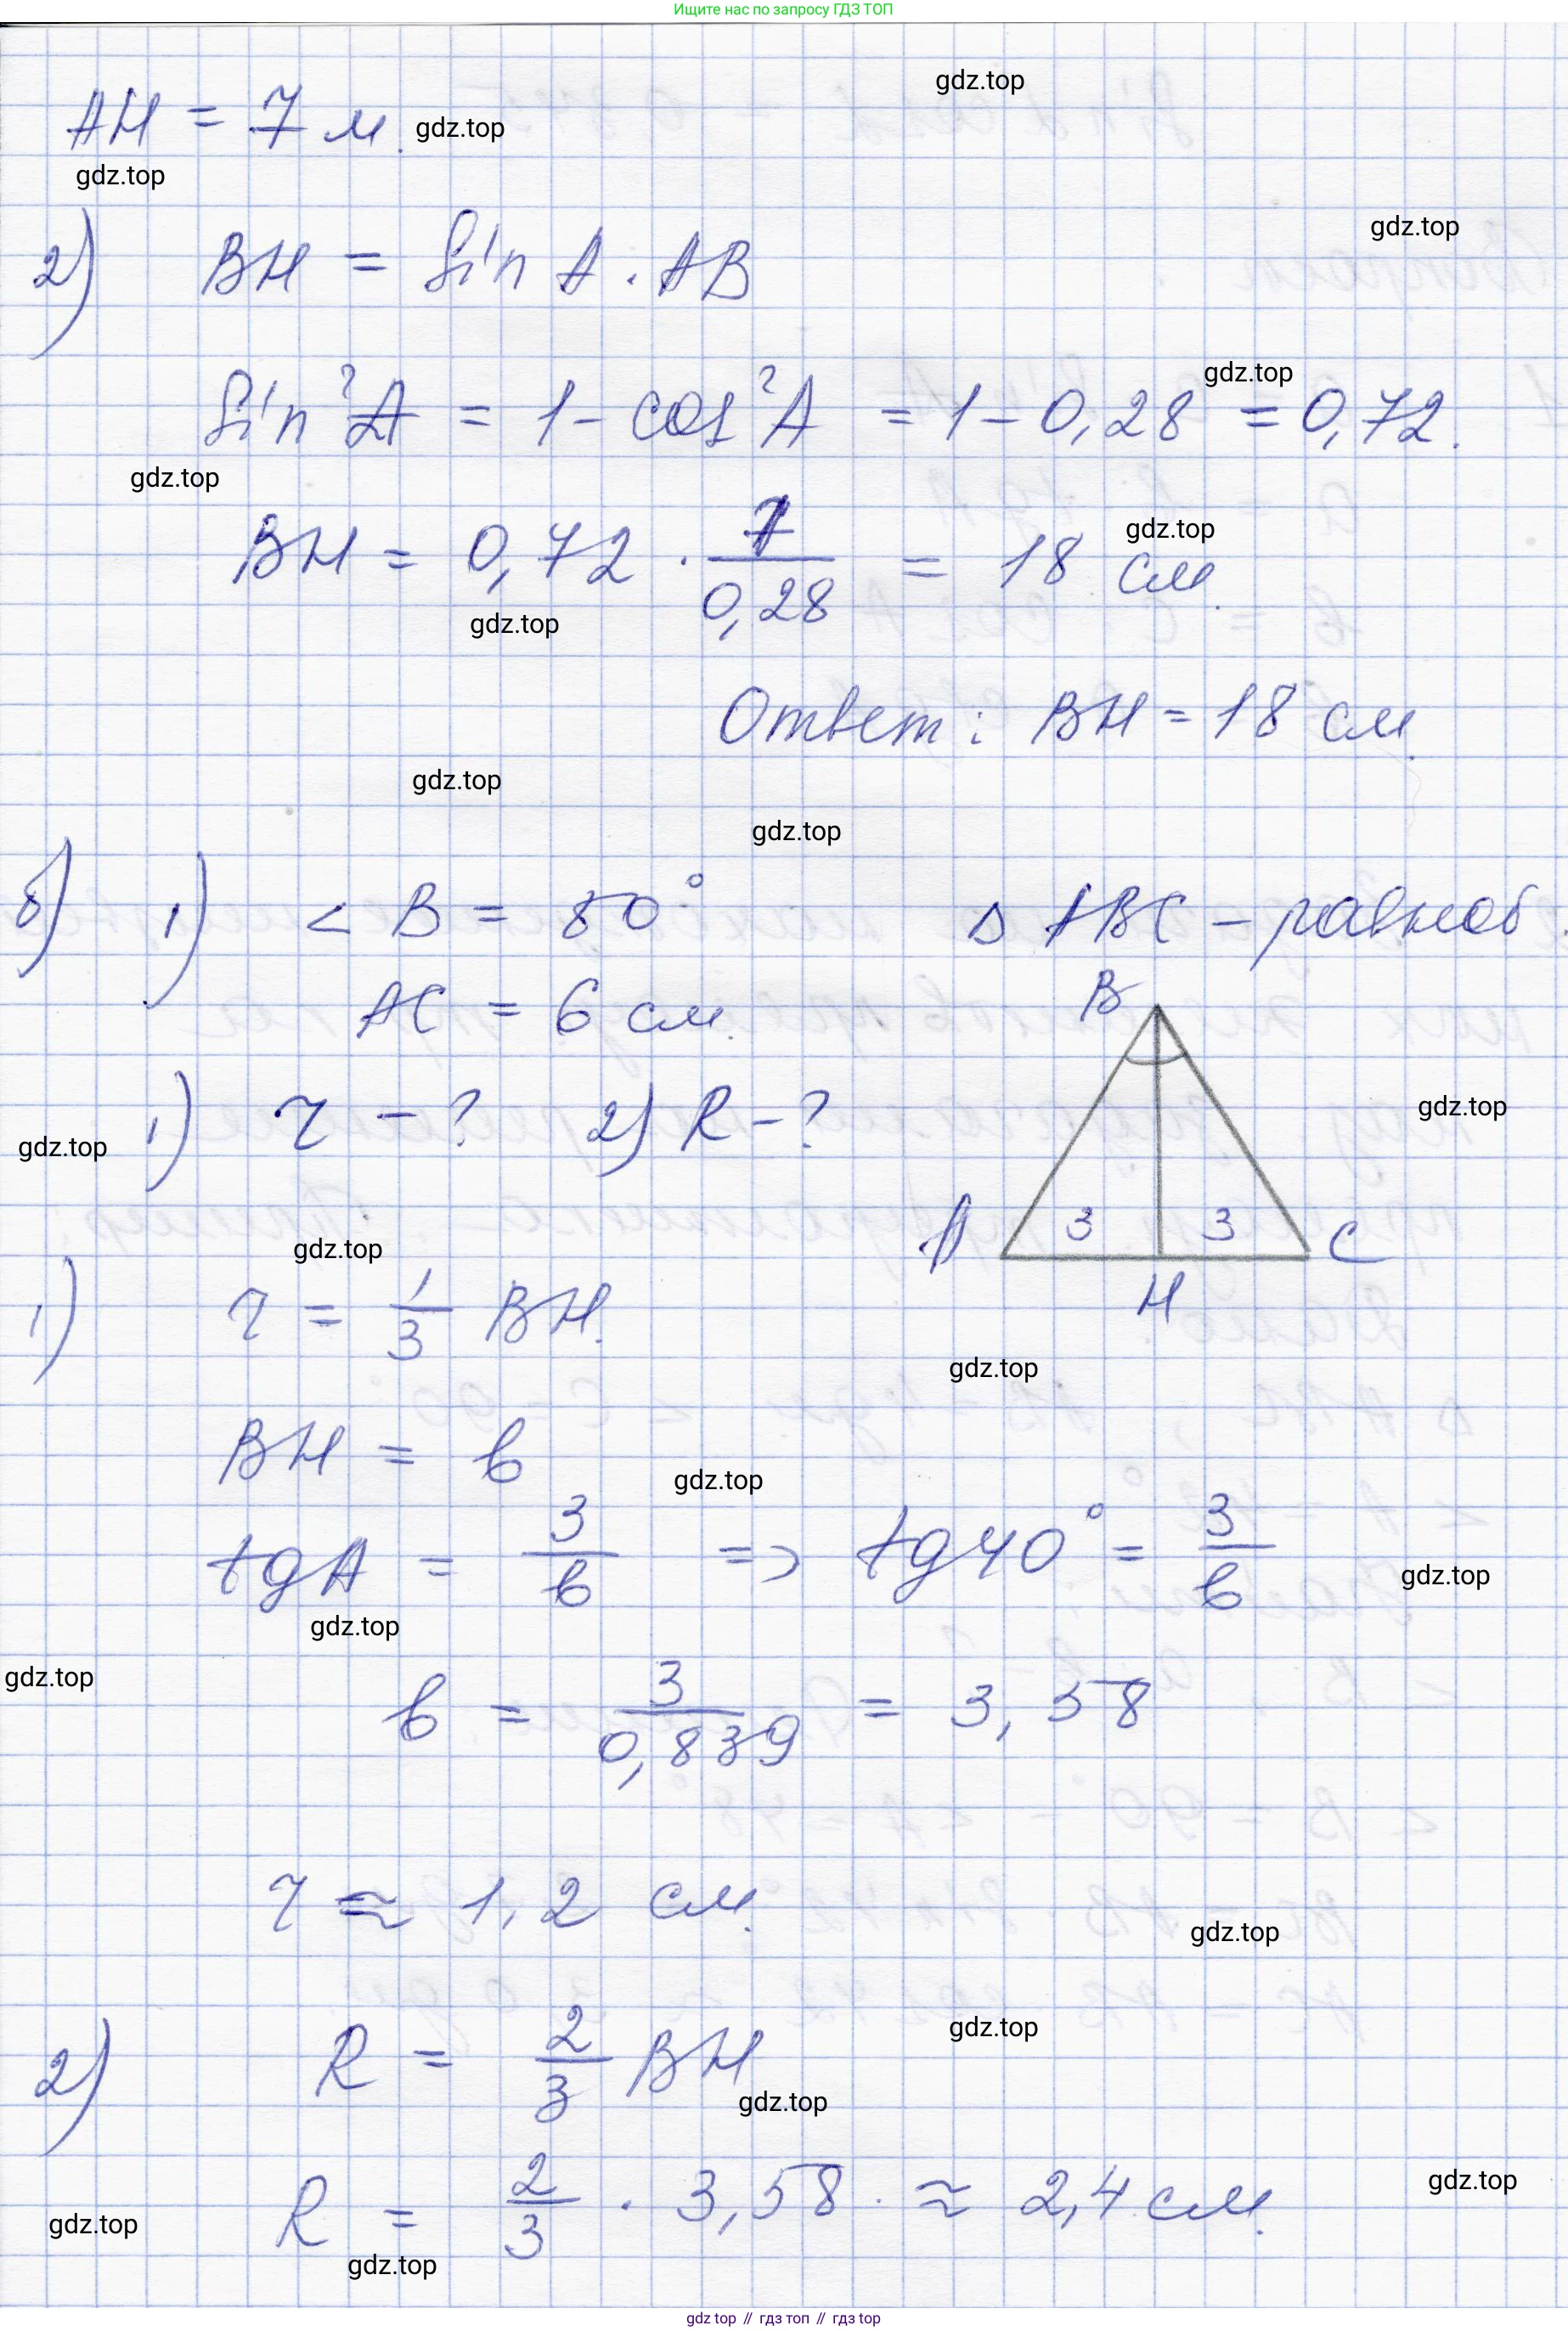 Ищите нас по запросу ГДЗ ТОП
gdz.top
AH = 7 м.
gdz.top
gdz.top
gdz.top
2) BH = sin A · AB
gdz.top
sin²A = 1 - cos²A = 1 - 0,28 = 0,72.
gdz.top
BH = 0,72 · 7/0,28 = 18 см.
gdz.top
gdz.top
Ответ: BH = 18 см.
gdz.top
gdz.top
б) 1) < B = 80° Δ ABC - равноб.
AC = 6 см.
B
1) r - ? 2) R - ?
gdz.top
gdz.top
A 3 3 C
H
gdz.top
1) r = 1/3 BH.
gdz.top
BH = b
gdz.top
tg A = 3/b => tg 40° = 3/b
gdz.top
gdz.top
gdz.top
b = 3/0,839 = 3,58
r ≈ 1,2 см.
gdz.top
gdz.top
2) R = 2/3 BH
gdz.top
R = 2/3 · 3,58 ≈ 2,4 см.
gdz.top
gdz.top
gdz.top
gdz top // гдз топ // гдз top